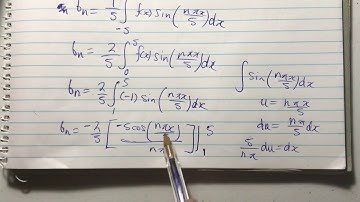 bn = 1/5 ∫_{-5}^{5} f(x) sin(nπx/5) dx
bn = 2/5 ∫_{0}^{5} f(x) sin(nπx/5) dx
bn = 2/5 ∫_{1}^{5} (-1) sin(nπx/5) dx
bn = -2/5 [ -5cos(nπx/5) / nπ ] |_{1}^{5}
∫ sin(nπx/5) dx
u = nπx/5
du = nπ/5 dx
5/nπ du = dx